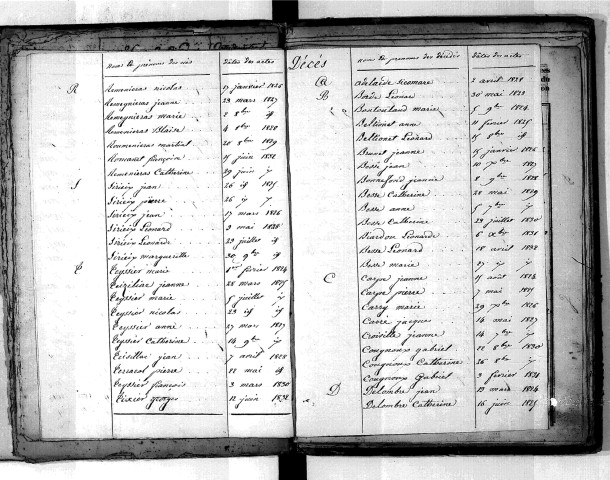 Noms & prénoms des nés Dates des actes
R Romenieras nicolas 17 janvier 1826
Romegnieras jeanne 23 mars 1827
Romegnieras marie 2 8bre if
Romenieras Blaise 4 8bre 1828
Romenieras martial 20 8bre 1829
Romanet françoise 7 juin 1832
Romenieras Catherine 29 juin y
S Siriéix jean 26 if 1825
Siriéix pierre 26 y y
Siriéix jean 17 mars 1826
Siriéix Léonard 3 mai 1828
Siriéix Léonarde 29 juillet if
Siriéix marguerite 30 9bre if
T Teyssier marie 1er fevrier 1824
Teizillac jeanne 28 mars 1825
Teyssier marie 5 juillet y
Teyssier nicolas 23 if if
Teyssier anne 27 mars 1827
Teyssier Catherine 14 9bre y
Teisillac jean 7 avril 1828
Terracol pierre 22 mai if
Teyssier françois 3 mars 1830
Teixier georges 12 juin 1832
Décés
Noms & prénoms des décédés Dates des actes
A adelaïde 2 avril 1828
B Borde Léonard 30 mai 1823
Bonlouland marie 5 9bre 1824
Beltionet anne 11 fevrier 1825
Beltionet Léonard 15 8bre if
Brunet jeanne 15 janvier 1826
Bossé jean 10 7bre 1827
Bonnefond jeanne 8 9bre 1828
Bosse Catherine 28 mai 1829
Bosse anne 5 7bre y
Bosse Catherine 29 juillet 1830
Biardou Léonarde 6 Xbre 1831
Besse Léonard 18 avril 1832
Bosse marie 27 y y
C Carpe jeanne 11 aout 1824
Carpe pierre 7 mai 1825
Carry marie 29 7bre 1826
Carré jacques 16 mai 1827
Croisille jeanne 14 7bre y
Cougnoux gabriel 22 8bre 1830
Cougnoux Catherine 26 8bre y
Cougnoux Gabriel 3 fevrier 1831
D Delombre jean 13 mars 1824
Delombre Catherine 16 juin 1825